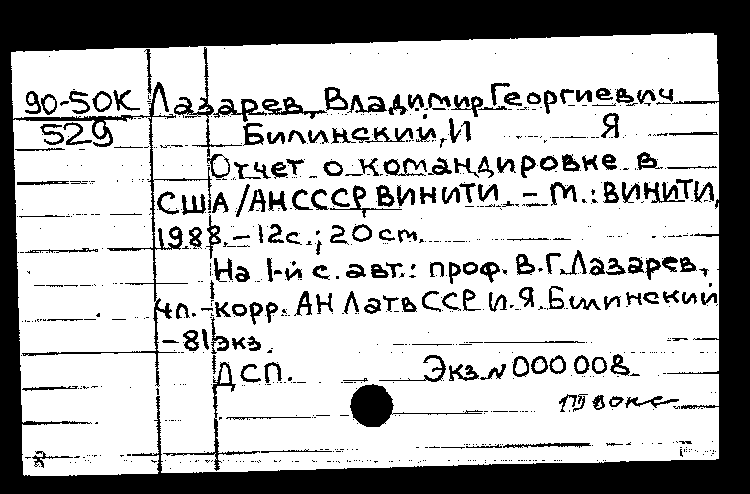 90-50К Лазарев, Владимир Георгиевич
529 Билинский, И Я
Отчет о командировке в
США / АН СССР, ВИНИТИ. – М.: ВИНИТИ,
1988. – 12с.; 20 cm.
На 1-й с. авт.: проф. В.Г. Лазарев,
чл.-корр. АН Латв ССР И.Я. Билинский
– 81 экз.
ДСП. Экз. N 000 008
8